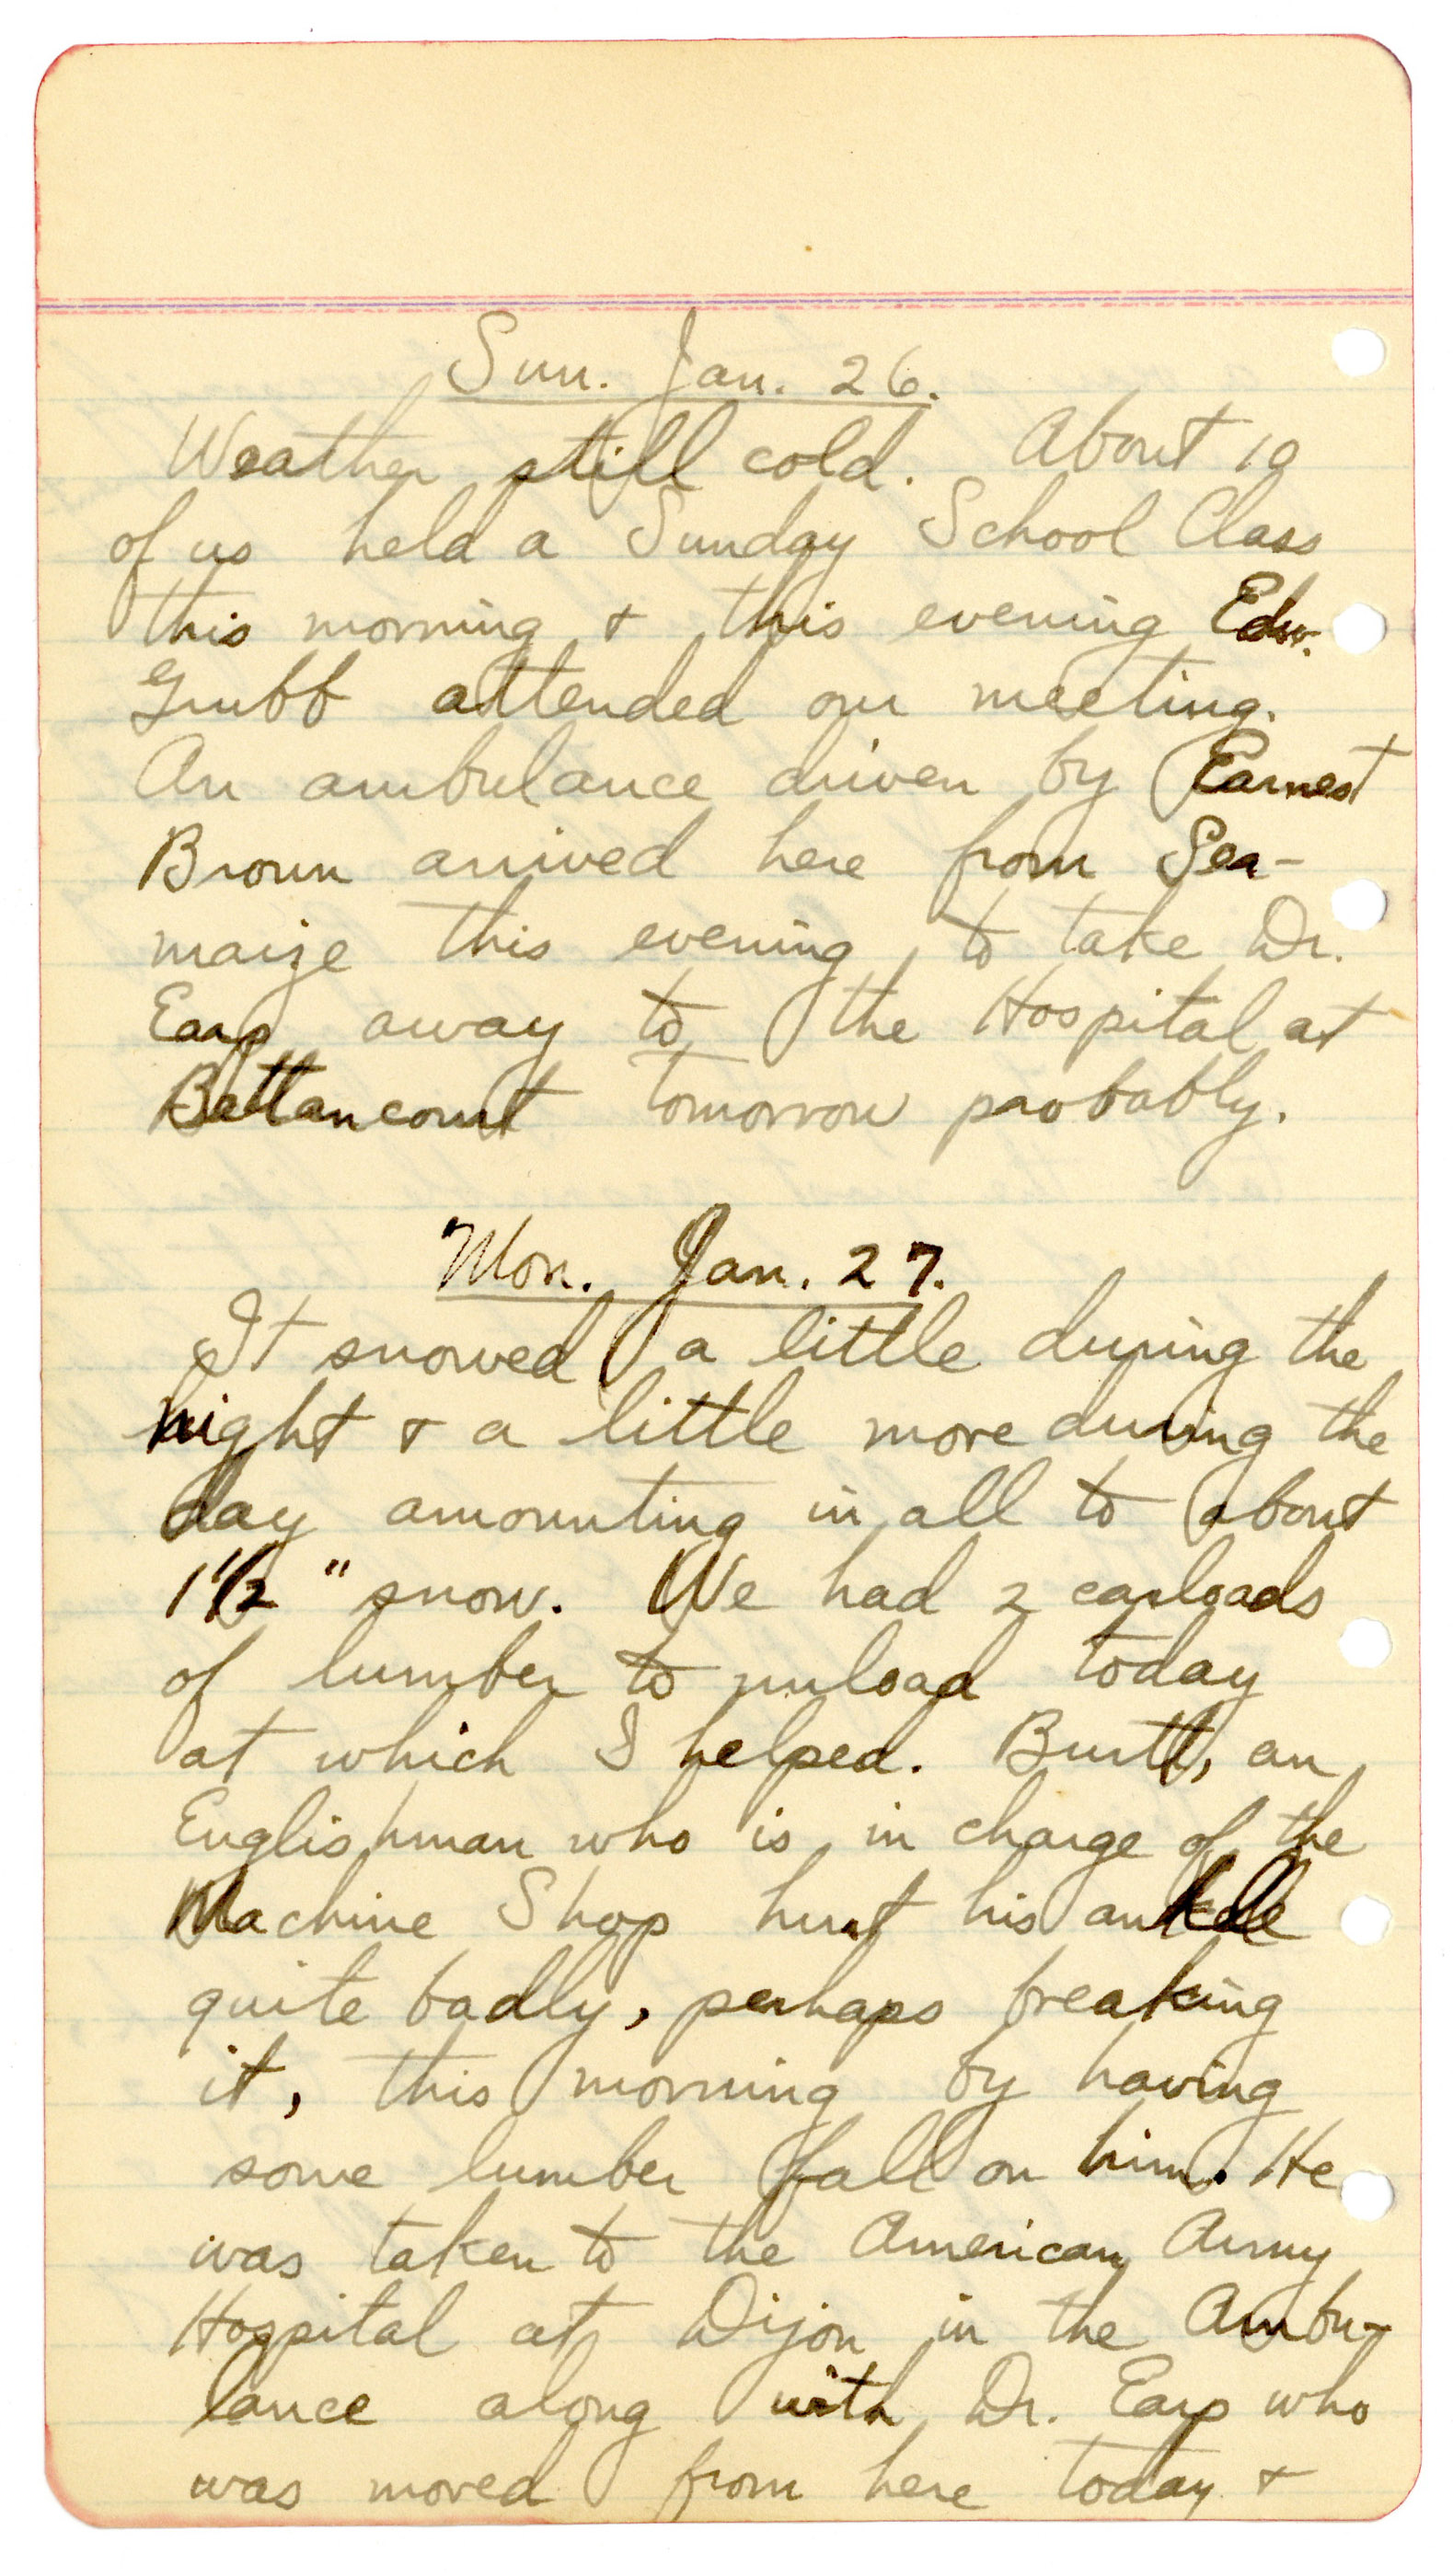 Sun. Jan. 26.
Weather still cold. About 10
of us held a Sunday School Class
this morning & this evening Edw.
Grubb attended our meeting.
An ambulance driven by Earnest
Brown arrived here from Sea-
maize this evening to take Dr.
Earp away to the Hospital at
Bettancourt tomorrow probably.
Mon. Jan. 27.
It snowed a little during the
night & a little more during the
day amounting in all to about
1 1/2 " snow. We had 2 carloads
of lumber to unload today
at which I helped. Burtt, an
Englishman who is in charge of the
Machine Shop hurt his ankle
quite badly, perhaps breaking
it, this morning by having
some lumber fall on him. He
was taken to the American Army
Hospital at Dijon in the Ambu-
lance along with Dr. Earp who
was moved from here today &